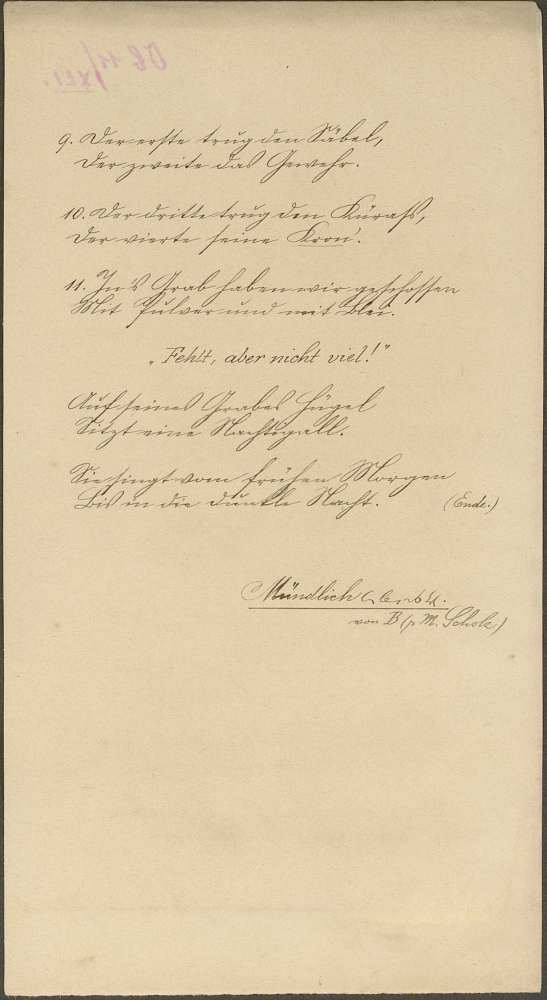 9. Der erste trug den Säbel,
Der zweite das Gewehr.
10. Der dritte trug den Küraß,
Der vierte seine Kron'.
11. In's Grab haben wir geschossen
Mit Pulver und mit Blei.
„Fehlt, aber nicht viel!"
Auf seines Grabes Hügel
Sitzt eine Nachtigall.
Sie singt vom frühen Morgen
Bis in die dunkle Nacht. (Ende.)
Mündlich
von B (p M. Scholz)